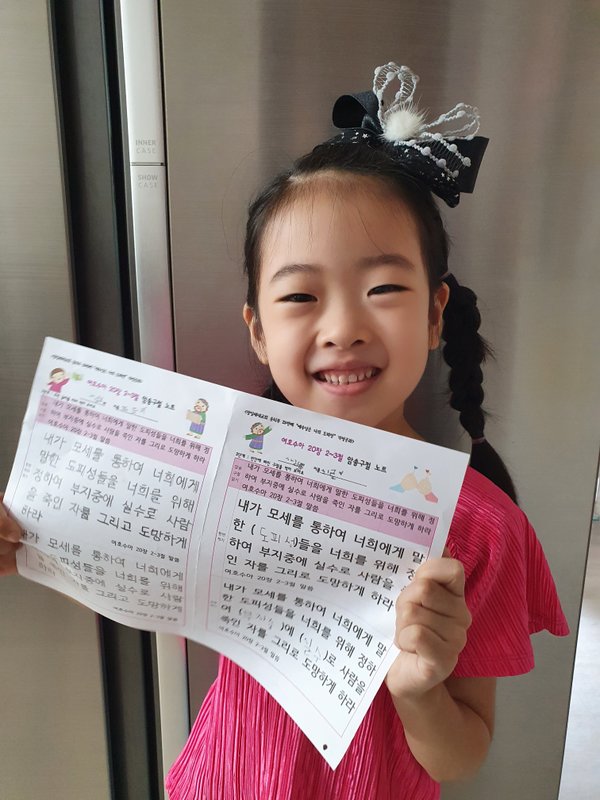 INNER
CASE
SHOW
CASE
여호수아 20장 2~3절 암송구절 노트
내가 모세를 통하여 너희에게 말한 도피성들을 너희를 위해 정
하여 부지중에 실수로 사람을 죽인 자를 그리로 도망하게 하라
여호수아 20장 2~3절 말씀
내가 모세를 통하여 너희에게
말한 도피성들을 너희를 위해
정하여 부지중에 실수로 사람
을 죽인 자를 그리고 도망하게
하라
여호수아 20장 2~3절 말씀
내가 모세를 통하여 너희에게
말한 도피성들을 너희를 위해
부지중에 실수로 사람
자를 그리고 도망하게
여호수아 20장 2~3절 말씀
여호수아 20장 2~3절 암송구절 노트
내가 모세를 통하여 너희에게 말한 도피성들을 너희를 위해 정
하여 부지중에 실수로 사람을 죽인 자를 그리로 도망하게 하라
여호수아 20장 2~3절 말씀
내가 모세를 통하여 너희에게 말
한 (도피성)들을 너희를 위해 정
하여 부지중에 실수로 사람을 죽
인 자를 그리로 도망하게 하라
여호수아 20장 2~3절 말씀
내가 모세를 통하여 너희에게 말
한 도피성들을 너희를 위해 정하
여 ( )에 (실수)로 사람을
죽인 자를 그리로 도망하게 하라
여호수아 20장 2~3절 말씀